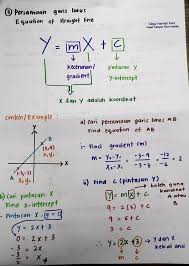 ③ Persamaan garis lurus
Equation of straight line
Y = m X + c
Kecerunan/
gradient
pintasan y
y-intercept
X dan Y adalah koordinat
Contoh/Example
B
(3,9)
A
(-3,-3)
a) Cari persamaan garis lurus AB
Find equation of AB
i- Find gradient (m)
m = y₂-y₁ / x₂-x₁ = -3-9 / -3-3 = -12 / -6 = 2
ii) Find C (pintasan y)
y = mx + c
9 = 2(3) + c
9 = 6 + c
3 = c
∴ y = 2x + 3
b) Cari pintasan X
Find x-intercept
Pintasan X, y = 0
y = 2x + 3
0 = 2x + 3
-3 = 2x